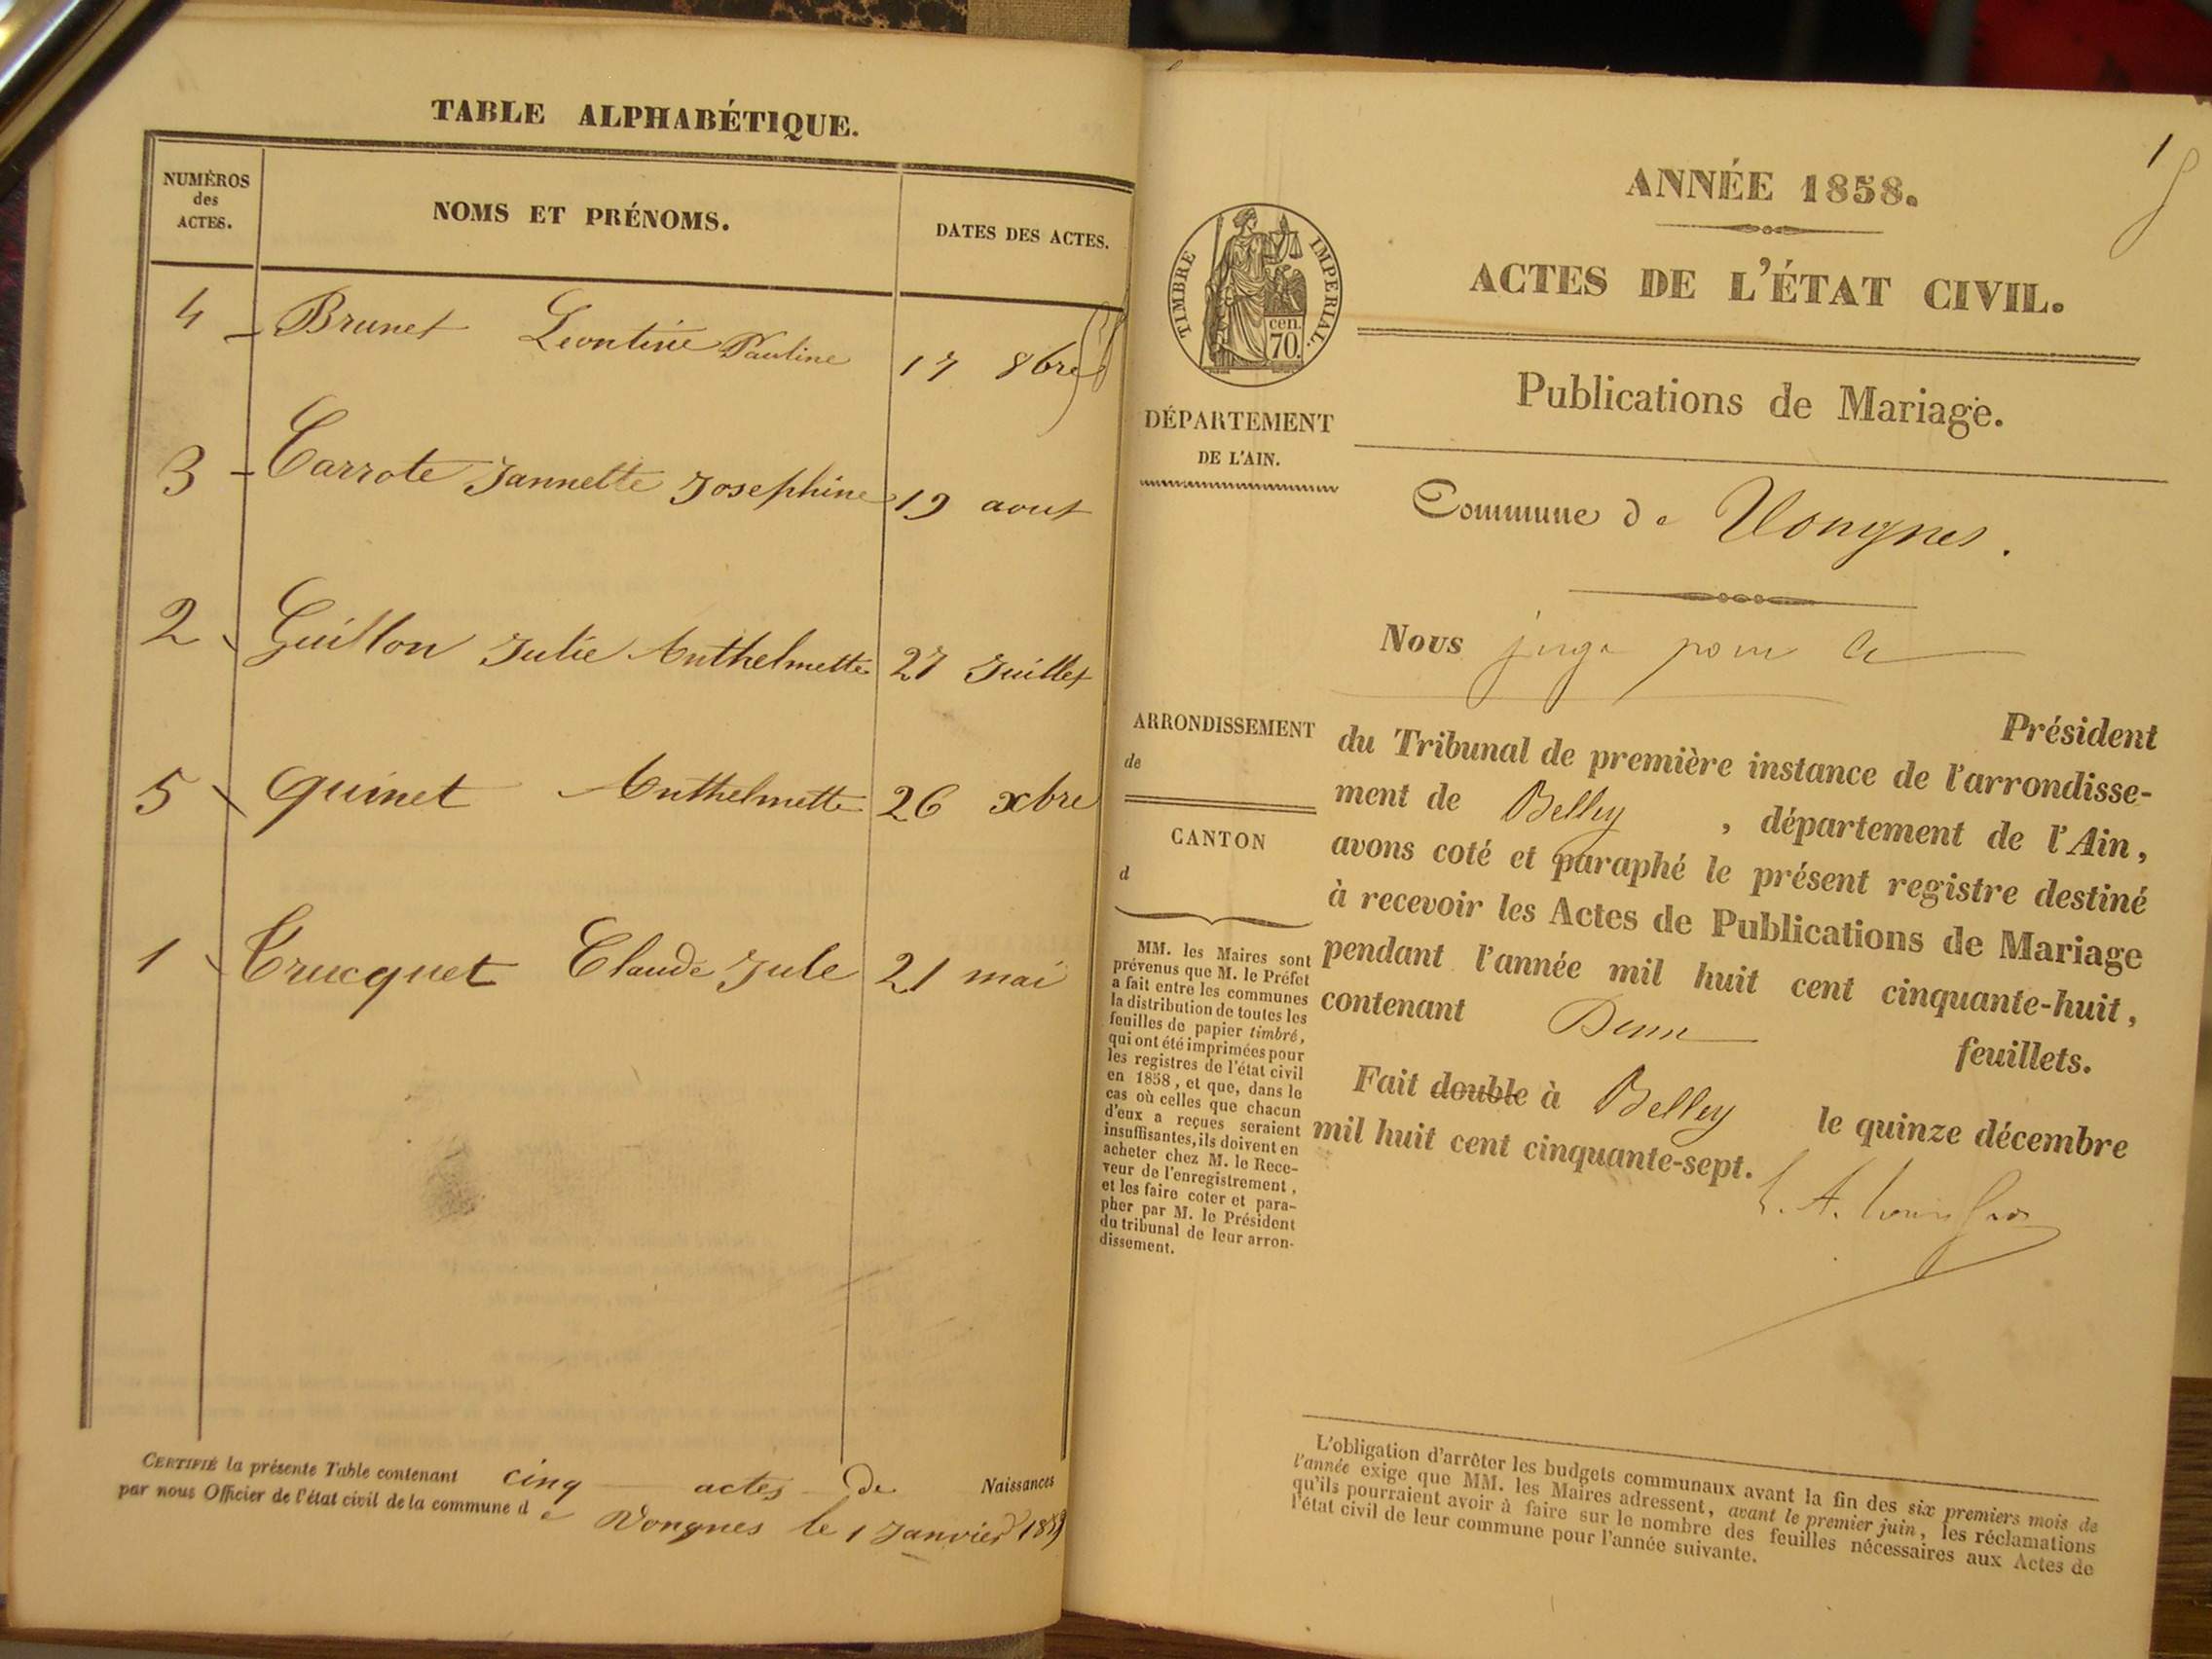 TABLE ALPHABÉTIQUE.
NUMÉROS des ACTES.
NOMS ET PRÉNOMS.
DATES DES ACTES.
4 Brunet Leontine Pauline 17 8bre
3 Carrote Jannette Josephine 19 aout
2 Guillon Julie Anthelmette 27 Juillet
5 quinet Anthelmette 26 xbre
1 Trucquet Claude Jule 21 mai
CERTIFIÉ la présente Table contenant cinq actes de Naissances
par nous Officier de l'état civil de la commune d e Vongnes le 1 Janvier 1859
1
ANNÉE 1858.
ACTES DE L'ÉTAT CIVIL.
TIMBRE IMPERIAL.
cen.
70.
Publications de Mariage.
DÉPARTEMENT
DE L'AIN.
Commune de Vongnes.
Nous juge pour le
Président
du Tribunal de première instance de l'arrondisse-
ment de Belley, département de l'Ain,
avons coté et paraphé le présent registre destiné
à recevoir les Actes de Publications de Mariage
pendant l'année mil huit cent cinquante-huit,
contenant Deux feuillets.
Fait double à Belley le quinze décembre
mil huit cent cinquante-sept.
ARRONDISSEMENT
de
CANTON
d
MM. les Maires sont
prévenus que M. le Préfet
a fait entre les communes
la distribution de toutes les
feuilles de papier timbré,
qui ont été imprimées pour
les registres de l'état civil
en 1858, et que, dans le
cas où celles que chacun
d'eux a reçues seraient
insuffisantes, ils doivent en
acheter chez M. le Rece-
veur de l'enregistrement,
et les faire coter et para-
pher par M. le Président
du tribunal de leur arron-
dissement.
L'obligation d'arrêter les budgets communaux avant la fin des six premiers mois de
l'année exige que MM. les Maires adressent, avant le premier juin, les réclamations
qu'ils pourraient avoir à faire sur le nombre des feuilles nécessaires aux Actes de
l'état civil de leur commune pour l'année suivante.